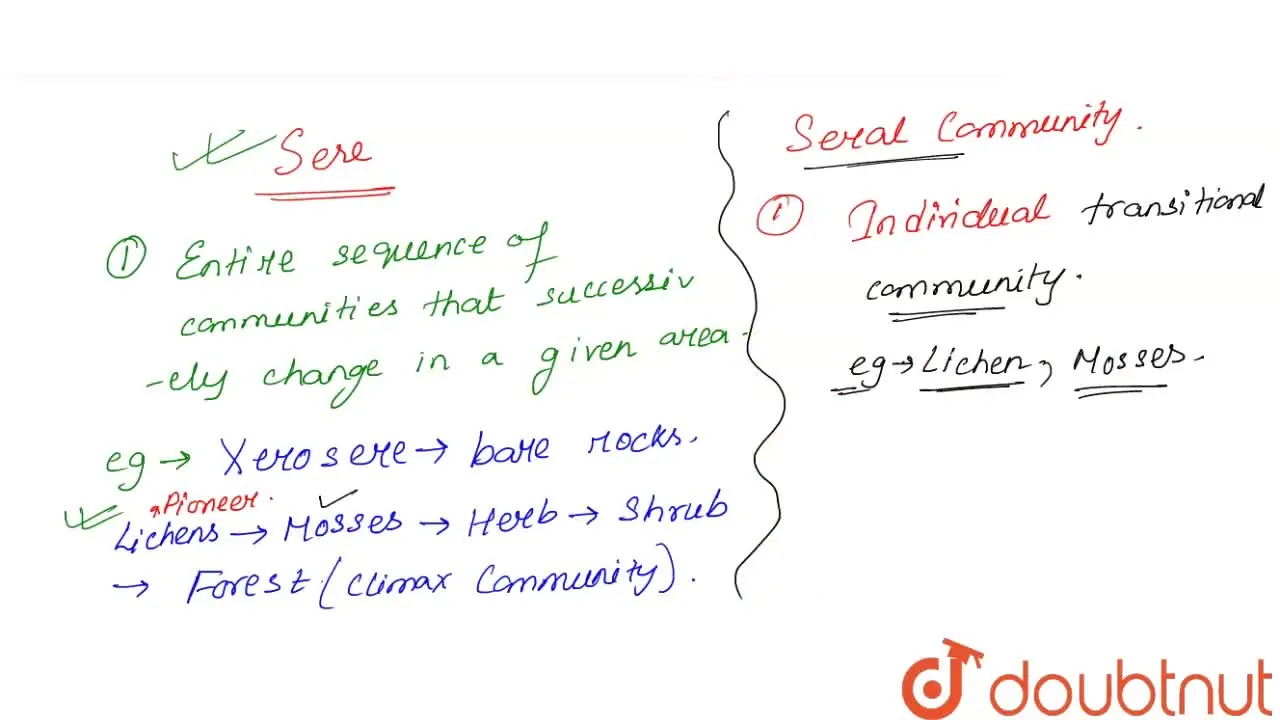 Sere
① Entire sequence of
communities that successiv
-ely change in a given area.
eg → Xerosere → bare rocks.
Pioneer.
Lichens → Mosses → Herb → Shrub
→ Forest (Climax Community).
Seral Community.
① Individual transitional
community.
eg → Lichen, Mosses.
doubtnut